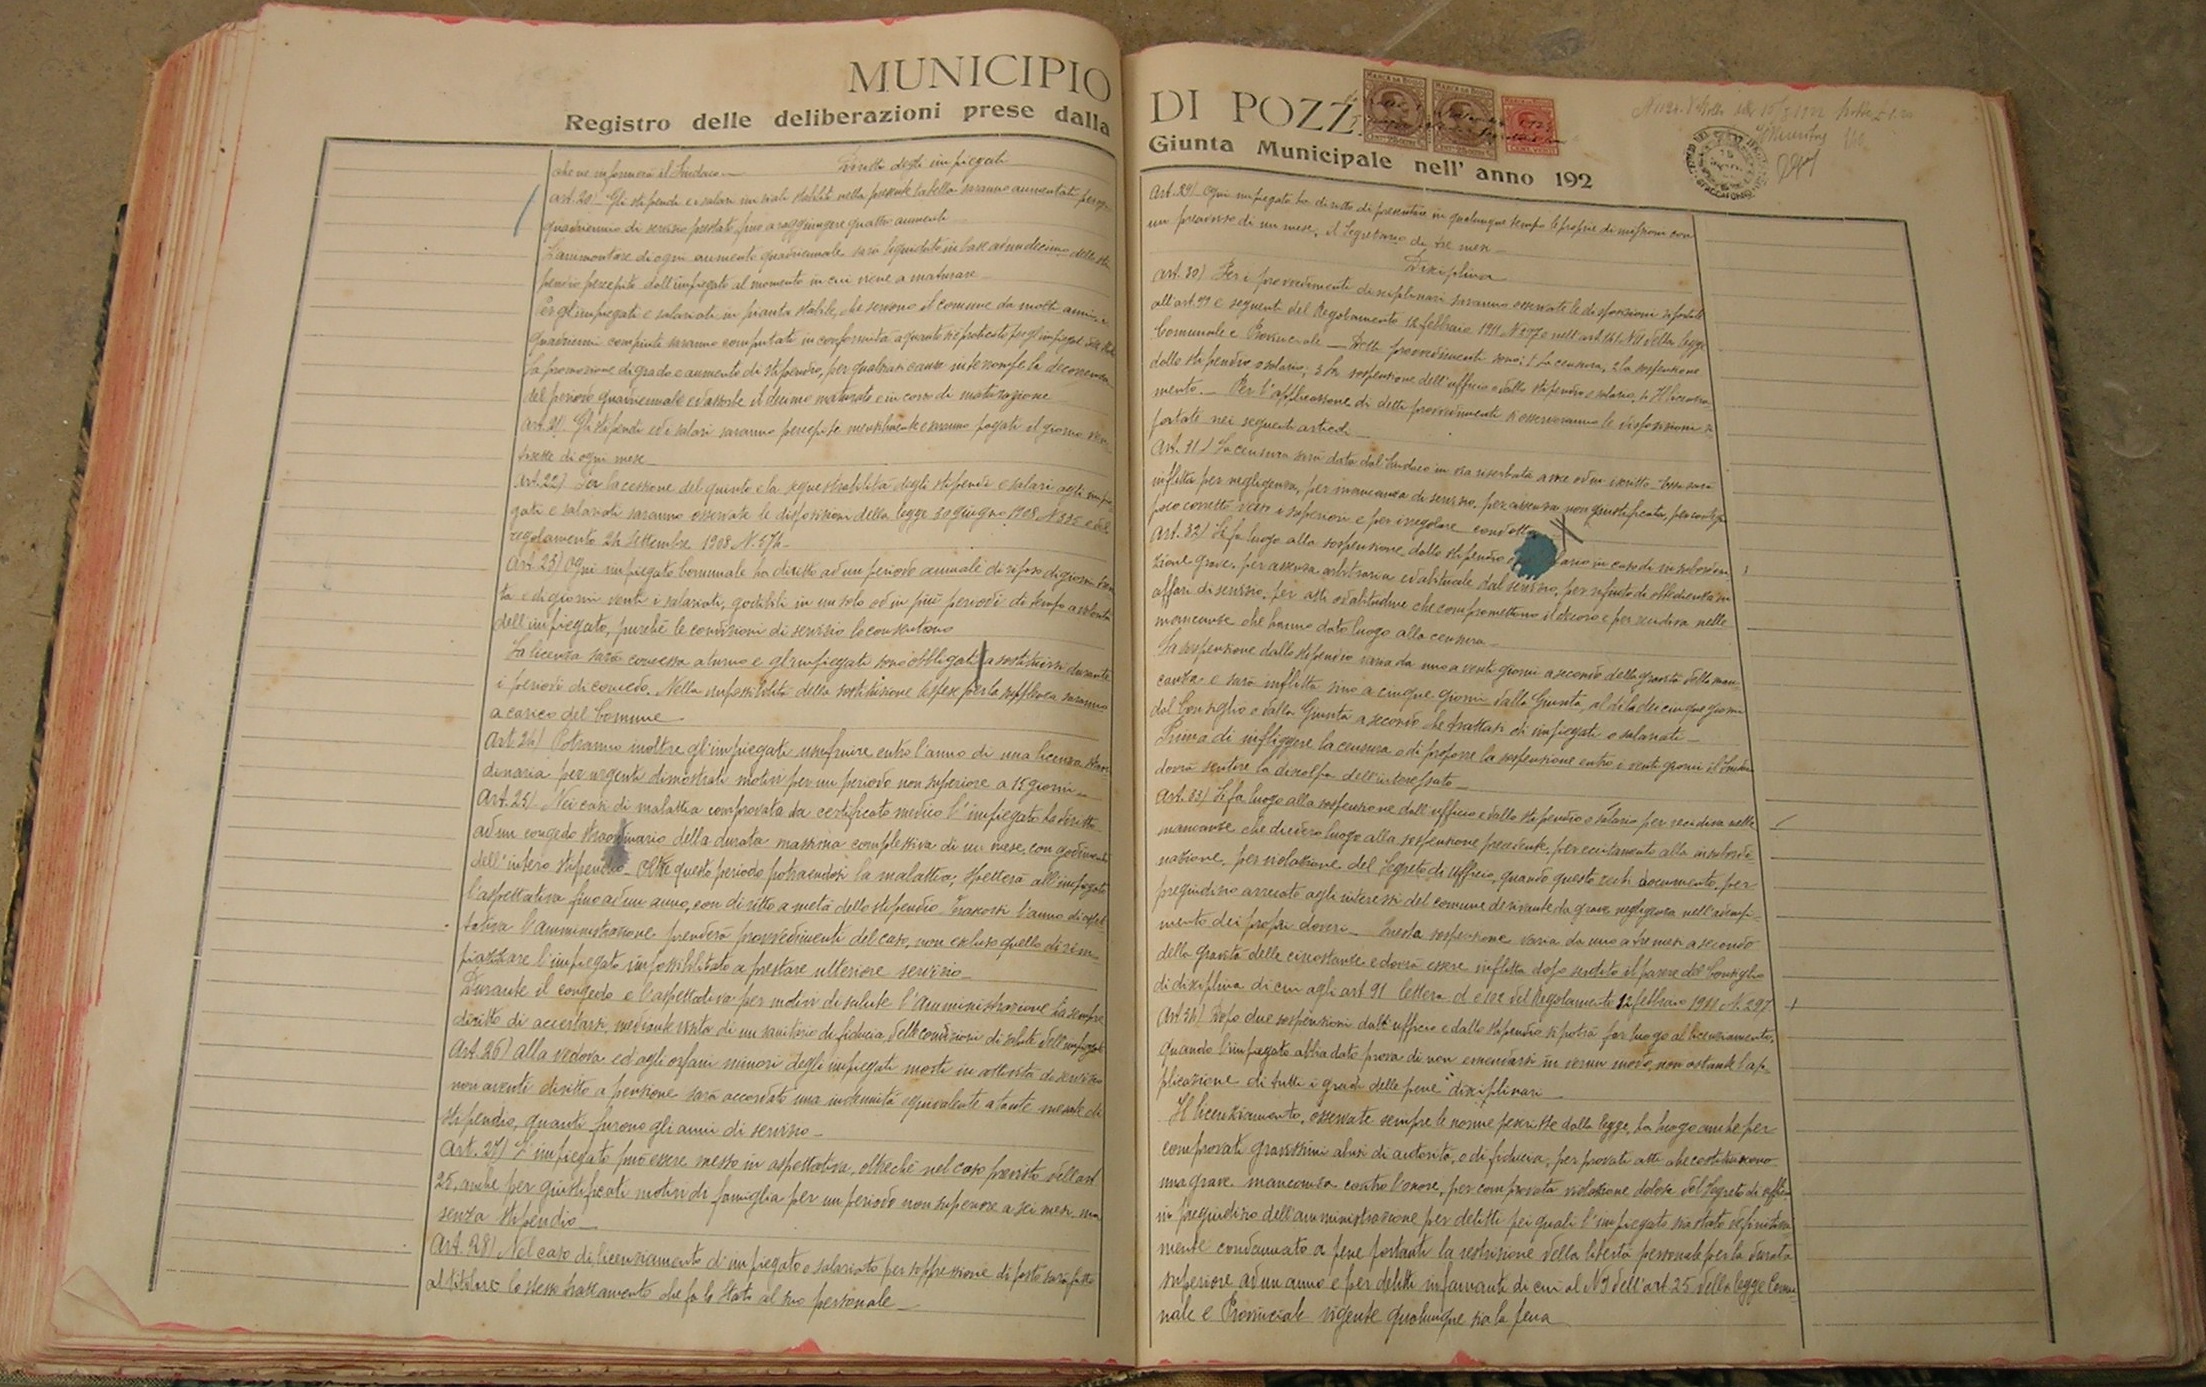 MUNICIPIO
Registro delle deliberazioni prese dalla
che ne informerà il Sindaco — Diritti degli impiegati
Art. 20) Gli stipendi e i salari iniziali stabiliti nella presente tabella saranno aumentati per ogni
quadriennio di servizio prestato, fino a raggiungere quattro aumenti
L'ammontare di ogni aumento quadriennale sarà liquidato in base ad un decimo dello sti
pendio percepito dall'impiegato al momento in cui viene a maturare
Per gl'impiegati e salariati in pianta stabile, che servono il comune da molti anni i
quadrienni compiuti saranno computati in conformità a quanto si è praticato per gl'impiegati dello Stato
La promozione di grado e aumento di stipendio, per qualsiasi causa interrompe la decorrenza
del periodo quadriennale ed assorbe il decimo maturato e in corso di maturazione
Art. 21) Gli stipendi ed i salari saranno percepiti mensilmente e saranno pagati il giorno ven
tisette di ogni mese
Art. 22) Per la cessione del quinto e la sequestrabilità degli stipendi e salari agli impie
gati e salariati saranno osservate le disposizioni della legge 30 giugno 1908 N. 335 e del
regolamento 24 Settembre 1908 N. 574 -
Art. 23) Ogni impiegato Comunale ha diritto ad un periodo annuale di riposo di giorni tren
ta e di giorni venti i salariati, godibili in un solo od in più periodi di tempo a volontà
dell'impiegato, purchè le condizioni di servizio lo consentano
La licenza sarà concessa a turno e gl'impiegati sono obbligati a sostituirsi durante
i periodi di concedo. Nella impossibilità della sostituzione le spese per la supplenza saranno
a carico del Comune
Art. 24) Potranno inoltre gl'impiegati usufruire entro l'anno di una licenza straor
dinaria per urgenti dimostrati motivi per un periodo non superiore a 15 giorni —
Art. 25) Nei casi di malattia comprovata da certificato medico l'impiegato ha diritto
ad un congedo straordinario della durata massima complessiva di un mese, con godimento
dell'intero stipendio — Oltre questo periodo potraendosi la malattia, spetterà all'impiegato
l'aspettativa fino ad un anno, con diritto a metà dello stipendio. Trascorsi l'anno di aspet
tativa l'amministrazione prenderà provvedimenti del caso, non escluso quello di rim-
piazzare l'impiegato impossibilitato a prestare ulteriore servizio —
Durante il congedo e l'aspettativa per motivi di salute l'amministrazione ha sempre
diritto di accertarsi, mediante visita di un sanitario di fiducia, delle condizioni di salute dell'impiegato
Art. 26) Alla vedova ed agli orfani minori degli impiegati morti in attività di servizio
non aventi diritto a pensione sarà accordato una indennità equivalente a tante mesate di
stipendio, quanti furono gli anni di servizio —
Art. 27) L'impiegato può essere messo in aspettativa, oltrechè nel caso previsto dall'art
25, anche per giustificati motivi di famiglia per un periodo non superiore a sei mesi, ma
senza stipendio
Art. 28) Nel caso di licenziamento d'impiegato o salariato per soppressione di posto sarà fatto
al titolare lo stesso trattamento che fa lo Stato al suo personale —
DI POZZ
Giunta Municipale nell' anno 192
MARCA DA BOLLO
MARCA DA BOLLO
Art. 29) Ogni impiegato ha diritto di presentare in qualunque tempo le proprie dimissioni con
un preavviso di un mese, il Segretario di tre mesi —
Disciplina
Art. 30) Per i provvedimenti disciplinari saranno osservate le disposizioni riportate
all'art. 99 e seguenti del Regolamento 12 febbraio 1911 N. 297 e nell'art. della legge
Comunale e Provinciale — Detti provvedimenti sono: 1 La censura, 2 la sospensione
dallo stipendio o salario; 3 la sospensione dell'ufficio e dallo stipendio o salario, 4 Il licenzia-
mento — Per l'applicazione di detti provvedimenti si osserveranno le disposizioni ri
portate nei seguenti articoli —
Art. 31) La censura sarà data dal Sindaco in via riserbata a voce od in iscritto — Essa sarà
inflitta per negligenza, per mancanza di servizio, per assenza non giustificata, per contegno
poco corretto verso i superiori e per irregolare condotta
Art. 32) Si fa luogo alla sospensione dallo stipendio o ario in caso di insubordina
zione grave, per assenza arbitraria ed abituale dal servizio, per rifiuto di obbedienza in
affari di servizio, per atti od abitudine che compromettono il decoro e per recidiva nelle
mancanze che hanno dato luogo alla censura —
La sospensione dallo stipendio varia da uno a venti giorni a secondo della gravità della man-
canza e sarà inflitta sino a cinque giorni dalla Giunta, al di là dei cinque giorni
dal Consiglio o dalla Giunta a secondo che trattasi di impiegati o salariati —
Prima di infliggere la censura o di proporre la sospensione entro i venti giorni il Sindaco
dovrà sentire la discolpa dell'interessato —
Art. 33) Si fa luogo alla sospensione dall'ufficio e dallo stipendio o salario per recidiva nelle
mancanze che diedero luogo alla sospensione precedente, per eccitamento alla insubordi-
nazione, per violazione del Segreto di ufficio, quando questo rechi documento, per
pregiudizio arrecato agli interessi del comune derivante da grave negligenza nell'adempi-
mento dei propri doveri — Questa sospensione varia da uno a tre mesi a secondo
della gravità delle circostanze e dovrà essere inflitta dopo sentito il parere del Consiglio
di disciplina di cui agli art 91 lettera d e 102 del Regolamento 12 febbraio 1911 N. 297
Art. 34) Dopo due sospensioni dall'ufficio e dallo stipendio si potrà far luogo al licenziamento,
quando l'impiegato abbia dato prova di non emendarsi in verun modo, non ostante l'ap-
plicazione di tutti i gradi delle pene disciplinari —
Il licenziamento, osservate sempre le norme prescritte dalla legge, ha luogo anche per
comprovati gravissimi abusi di autorità, o di fiducia, per provati atti che costituiscono
una grave mancanza contro l'onore, per comprovata violazione dolosa del Segreto di uffi-
in pregiudizio dell'amministrazione per delitti pei quali l'impiegato sia stato definitiva
mente condannato a pene portanti la restrizione della libertà personale per la durata
superiore ad un anno e per delitti infamanti di cui al N 3 dell'art 25 della legge Comu-
nale e Provinciale vigente qualunque sia la pena